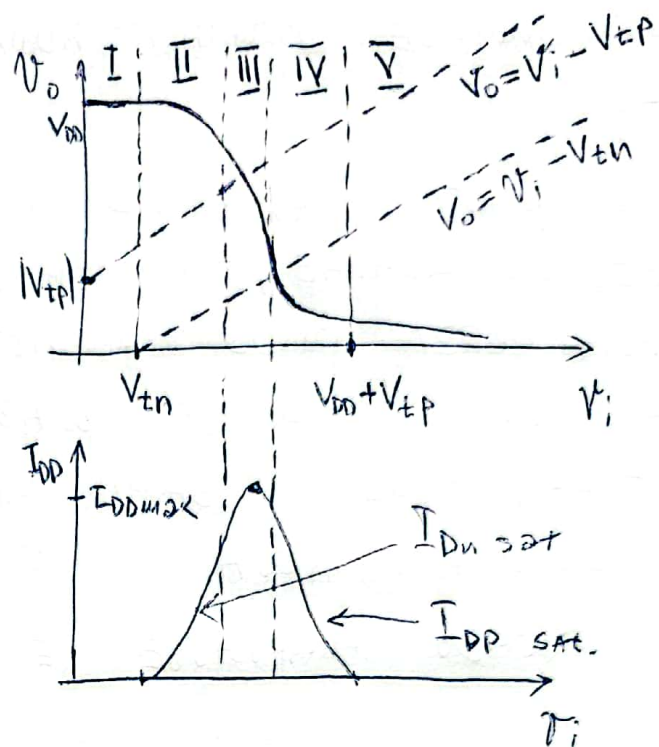 I II III IV V
v₀
V_DD
V₀ = Vᵢ - Vtp
V₀ = Vᵢ - Vtn
|Vtp|
Vtn
V_DD + Vtp
Vᵢ
I_DD
I_DDmax
I_Dn sat
I_DP SAT.
Vᵢ